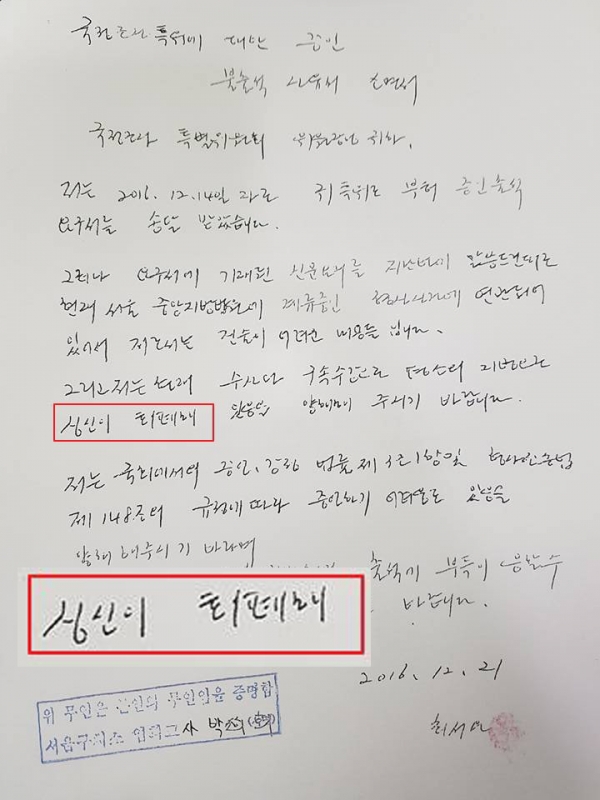 국정조사 특위에 대한 증인
불출석 사유서 소명서
국정조사 특별위원회 위원장님 귀하.
저는 2016. 12.14일 자로 귀 특위로 부터 증인출석
요구서를 송달 받았습니다.
그러나 요구서에 기재된 신문요지를 지난번에 말씀드린대로
현재 서울 중앙지방법원에 계류중인 형사사건에 연관되어
있어서 저로서는 진술이 어려운 내용들 입니다.
그리고 저는 현재 구속수감으로 평소의 지병으로
심신이 회폐해 있음을 양해해 주시기 바랍니다.
저는 국회에서의 증언, 감정 법률 제 3조 1항 및
제 148조의 규정에 따라 증언하기 있음을
양해 해주시기 바라며
출석에 부득이 응할수
심신이 회폐해 바랍니다.
2016. 12. 21
최서원
위 무인은 본인의 무인임을 증명함
서울구치소 박